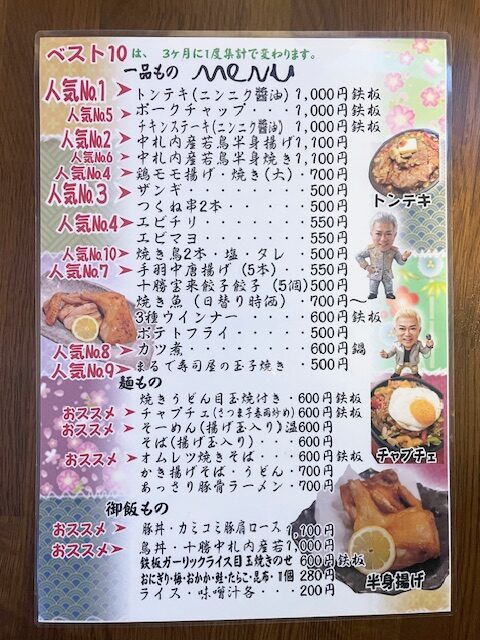 ベスト10は、3ヶ月に1度集計で変わります。
一品もの MENU
人気No.1 トンテキ(ニンニク醤油) 1,000円鉄板
人気No.5 ポークチャップ・・・1,000円鉄板
チキンステーキ(ニンニク醤油) 1,000円鉄板
人気No.2 中札内産若鳥半身揚げ1,100円
人気No.6 中札内産若鳥半身焼き1,100円
人気No.4 鶏モモ揚げ・焼き(大)・700円
人気No.3 ザンギ・・・・・・・500円
つくね串2本・・・・・500円
人気No.4 エビチリ・・・・・・550円
エビマヨ・・・・・・550円
人気No.10 焼き鳥2本・塩・タレ・500円
人気No.7 手羽中唐揚げ(5本)・・550円
十勝宝来餃子餃子(5個)500円
焼き魚(日替り時価)・700円〜
3種ウインナー・・・・600円鉄板
ポテトフライ・・・・500円
人気No.8 カツ煮・・・・・・・600円鍋
人気No.9 まるで寿司屋の玉子焼き・500円
麺もの
焼きうどん目玉焼付き・600円鉄板
おススメ チャプチェ(さつま子春雨炒め)600円鉄板
おススメ そーめん(揚げ玉入り)温600円
そば(揚げ玉入り)・・・600円
おススメ オムレツ焼きそば・・600円鉄板
かき揚げそば・うどん・・700円
あっさり豚骨ラーメン・700円
御飯もの
おススメ 豚丼・カミコミ豚肩ロース1,100円
おススメ 鳥丼・十勝中札内産若1,000円
鉄板ガーリックライス目玉焼きのせ 600円鉄板
おにぎり・梅・おかか・鮭・たらこ・昆布・1個 280円
ライス・味噌汁各・・・200円
トンテキ
チャプチェ
半身揚げ